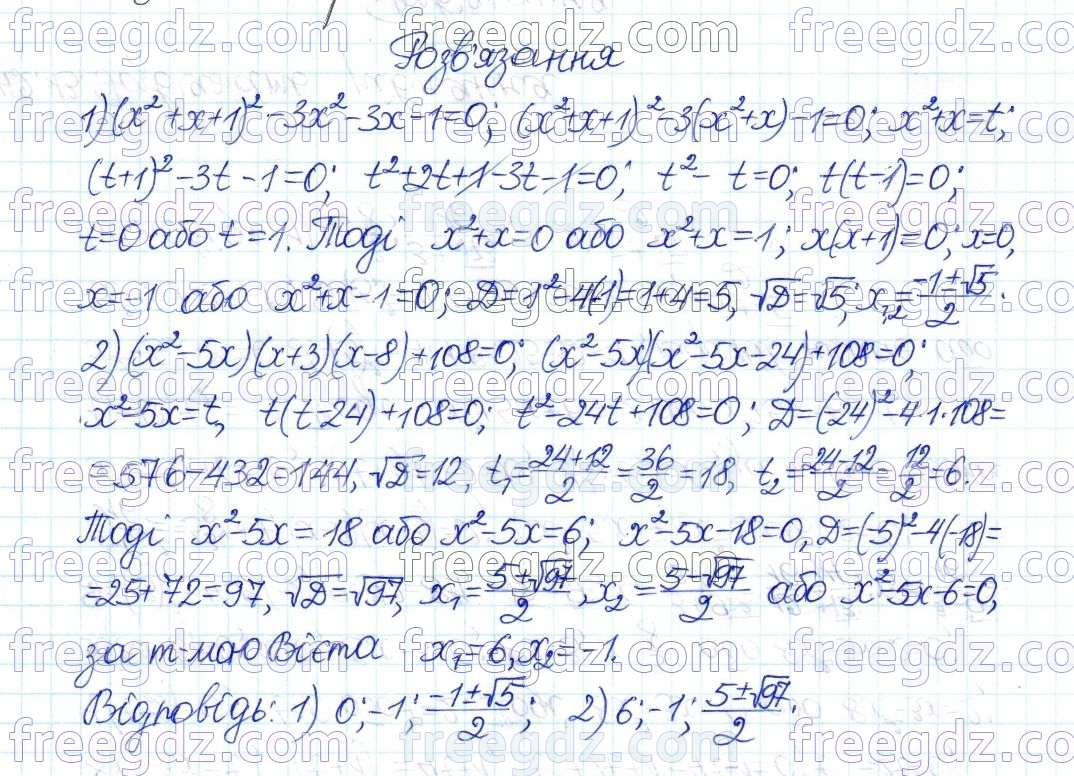 Розв'язання
1) (x²+x+1)²-3x²-3x-1=0; (x²+x+1)²-3(x²+x)-1=0; x²+x=t;
(t+1)²-3t-1=0; t²+2t+1-3t-1=0; t²-t=0; t(t-1)=0;
t=0 або t=1. Тоді x²+x=0 або x²+x=1; x(x+1)=0; x=0,
x=-1 або x²+x-1=0; D=1²-4(-1)=1+4=5, √D=√5; x₁,₂=(-1±√5)/2.
2) (x²-5x)(x+3)(x-8)+108=0; (x²-5x)(x²-5x-24)+108=0;
x²-5x=t, t(t-24)+108=0; t²-24t+108=0; D=(-24)²-4·1·108=
=576-432=144, √D=12, t₁=(24+12)/2=36/2=18, t₂=(24-12)/2=12/2=6.
Тоді x²-5x=18 або x²-5x=6; x²-5x-18=0, D=(-5)²-4(-18)=
=25+72=97, √D=√97, x₁=(5+√97)/2, x₂=(5-√97)/2 або x²-5x-6=0,
за т-мою Вієта x₁=6, x₂=-1.
Відповідь: 1) 0; -1; (-1±√5)/2; 2) 6; -1; (5±√97)/2.